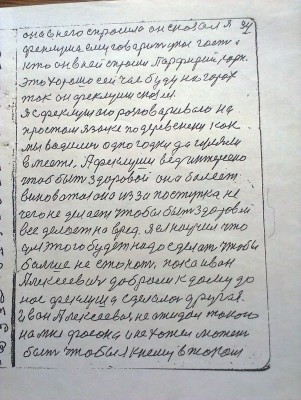 она в него спросила он сказал я 34
фрекуша ему говарит у нас гость
кто он в ней спросил Парфирий
Это хорошо сейчас буду на горах
так он фрекуши сказал.
Я с фрекушаю розговариваю на
простом языке по деревенски как
мы водились одногодки да гуляли
в месте, А фрекуши ведь интересно
чтобы быт здоровой она болеет
виновата она из за поступка не
чего не делает чтобы быт здоровой
все делает на вред. Я ея научил что
для этого будет надо сделат чтобы
болше не стонат, пока иван
Алексеевич добрался к дому до
нас фрекуша сделалас другая.
Иван Алексеевич не ожидал такого
на мне фасона и не хотел может
быт чтобы я к нему в таком